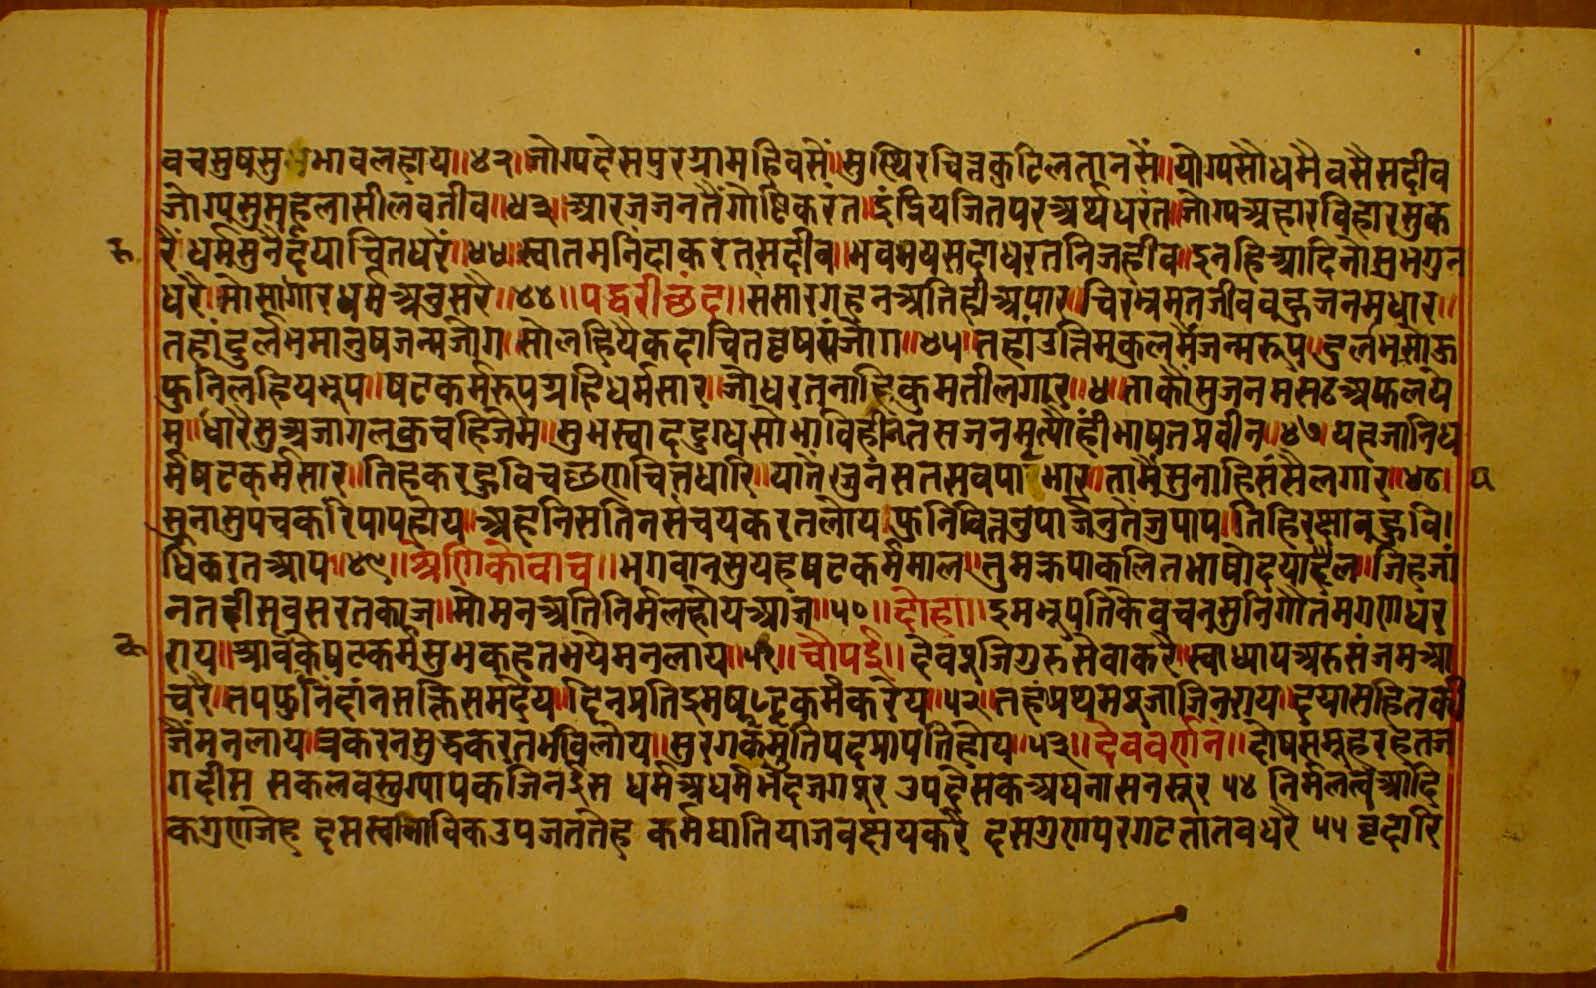 वचमुषसु भावलहाय॥४२॥जोग्पदेसपुरग्रामहिवसैं॥सुस्थिरचित्तकुटिलतानसैं॥योग्पसौधमैवसैसदीव
जोग्पसुमहिलासीलवतीव॥४३॥आरजजनतैंगोष्टिकरंत॥इंद्रियजितपरअर्थधरंत॥जोग्पअहारविहारसुक
रैं॥धर्मसुनैदयाचितधरैं॥४४॥स्वातमनिंदाकरतसदीव॥भवभयसदाधरतनिजहीव॥इनहिआदिजोसुभगुन
धरै॥सोसागारधर्मअनुसरै॥४४॥पद्धरीछंद॥संसारगहनअतिहीअपार॥चिरभ्रमतजीववहुजनमधार॥
तहांदुर्लभमानुषजन्मजोग॥सोलहियैकदाचितवृषसंजोग॥४५॥तहांउत्तिमकुलमैंजन्मरूप॥दुर्लभसोऊ
फुनिलहियभूप॥षटकर्मरूपग्रहिधर्मसार॥जोधरतनाहिकुमतीलगार॥४॥ताकौसुजनमसठअफलये
म॥धारैसुअजागलकुचहिजेम॥सुभस्वाददुग्धसोभाविहीनतसजनममृत्यौंहीभाषतप्रवीन॥४७॥यहजानिध
र्मषटकर्मसार॥तिहकरहुविचछणचितधारि॥यातैंजुनसतसवपापभार॥तामैंसुनाहिसंसैलगार॥४८॥
सूनासुपंचकरिपापहोय॥अहनिसतिनसंचयकरतलोय॥फुनिवित्तनुपार्जनुतजुपाप॥तिहिरक्षावहुवि।
धिकरतआप॥४९॥श्रेणिकोवाच॥भगवानसुयहषटकर्ममाल॥तुमक्रपाकलितभाषोदयाल॥जिहजां
नतहीसवसरतकाज॥मोमनअतिनिर्मलहोयआज॥५०॥दोहा॥इमभूपतिकेवचनसुनिगौतमगणधर
राय॥श्रावकैषटकर्मसुभकहतभयेमनलाय॥५१॥चौपई॥देवपूजिगुरुसेवाकरै॥स्वाध्यायअरुसंजमआ
चरै॥तपफुनिदांनसक्तिसमदेय॥दिनप्रतिइमषट्कर्मकरेय॥५२॥तहंप्रथमपूजाजिनराय॥दयासहितकी
जैंमनलाय॥त्रकरनसुद्धकरतभविलोय॥सुरगर्कमुतिपदप्रापतिहोय॥५३॥देववर्णनं॥दोषसमूहरहेतज
गदीस सकलवस्तुग्यापकजिनईस धर्मअधर्मभेदजगपूर उपदेसकअघनासनसूर ५४ निर्मलत्वआदि
कगुणजेह दससस्वाभाविकउपजततेह कर्मघातियाजवक्षयकरै दसगुणपरगटतातवधरै ५५ वृहारि